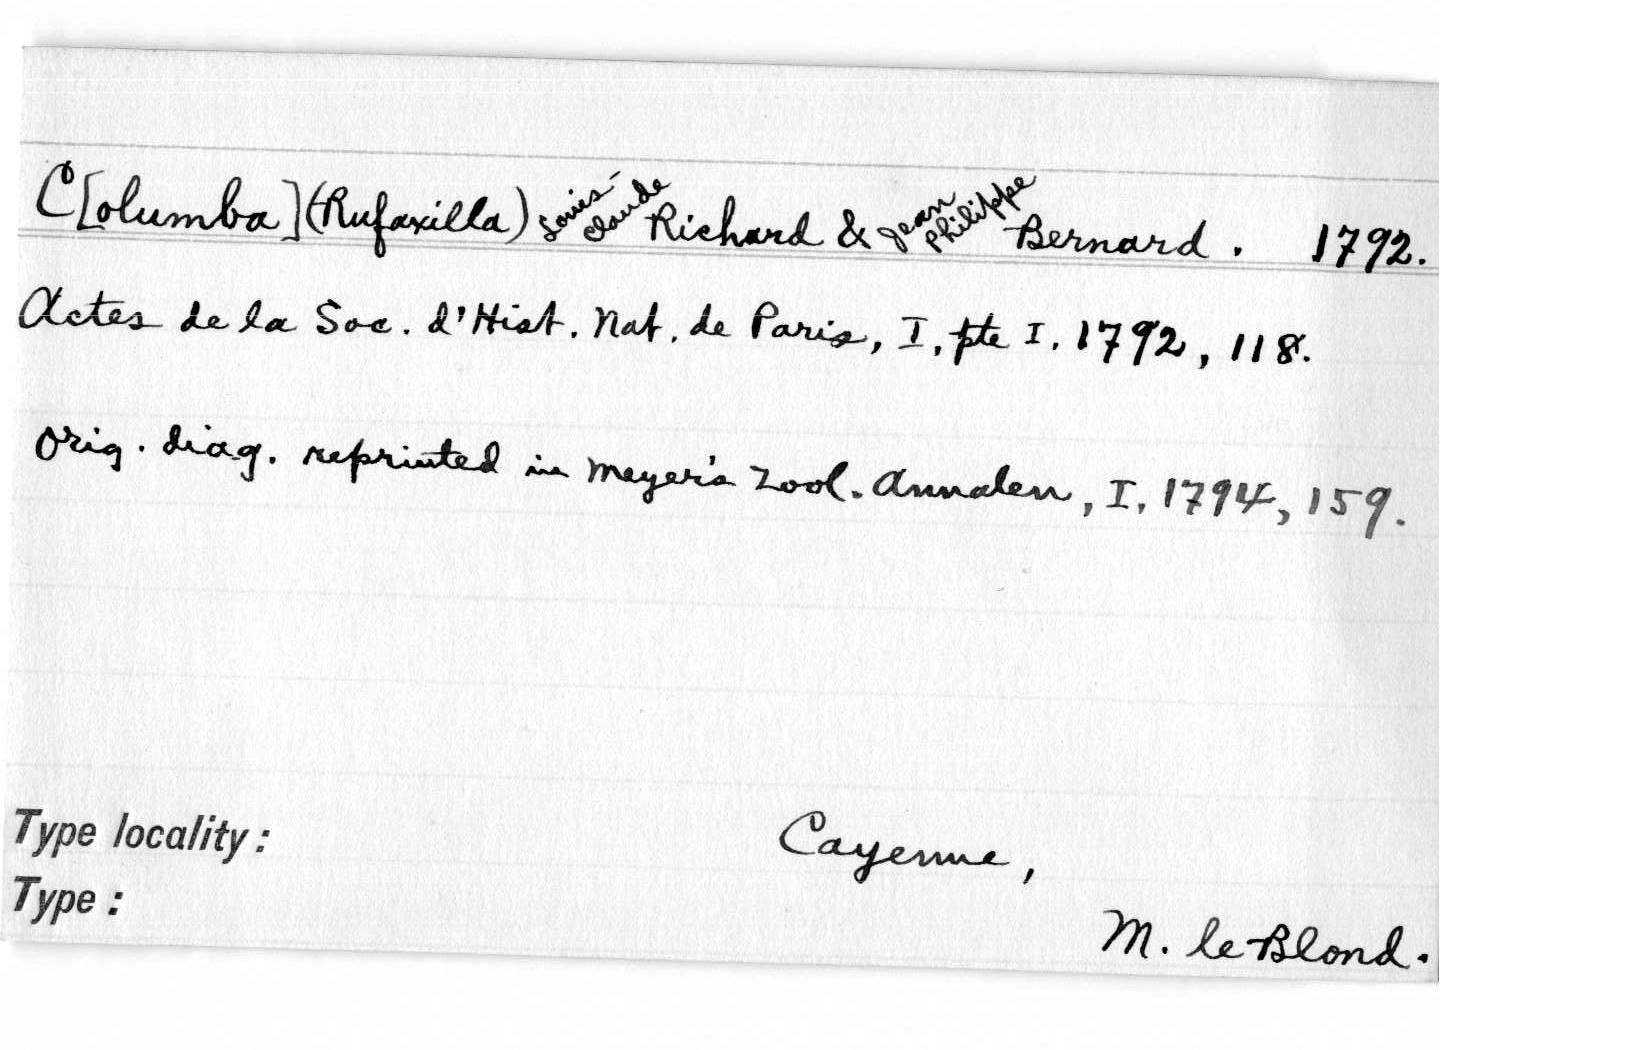 C[olumba] (Rufaxilla) Louis-Claude Richard & Jean Philippe Bernard. 1792.
Actes de la Soc. d'Hist. Nat. de Paris, I, pte I. 1792, 118.
Orig. diag. reprinted in Meyer's Zool. Annalen, I, 1794, 159.
Type locality: Cayenne,
Type: M. le Blond.